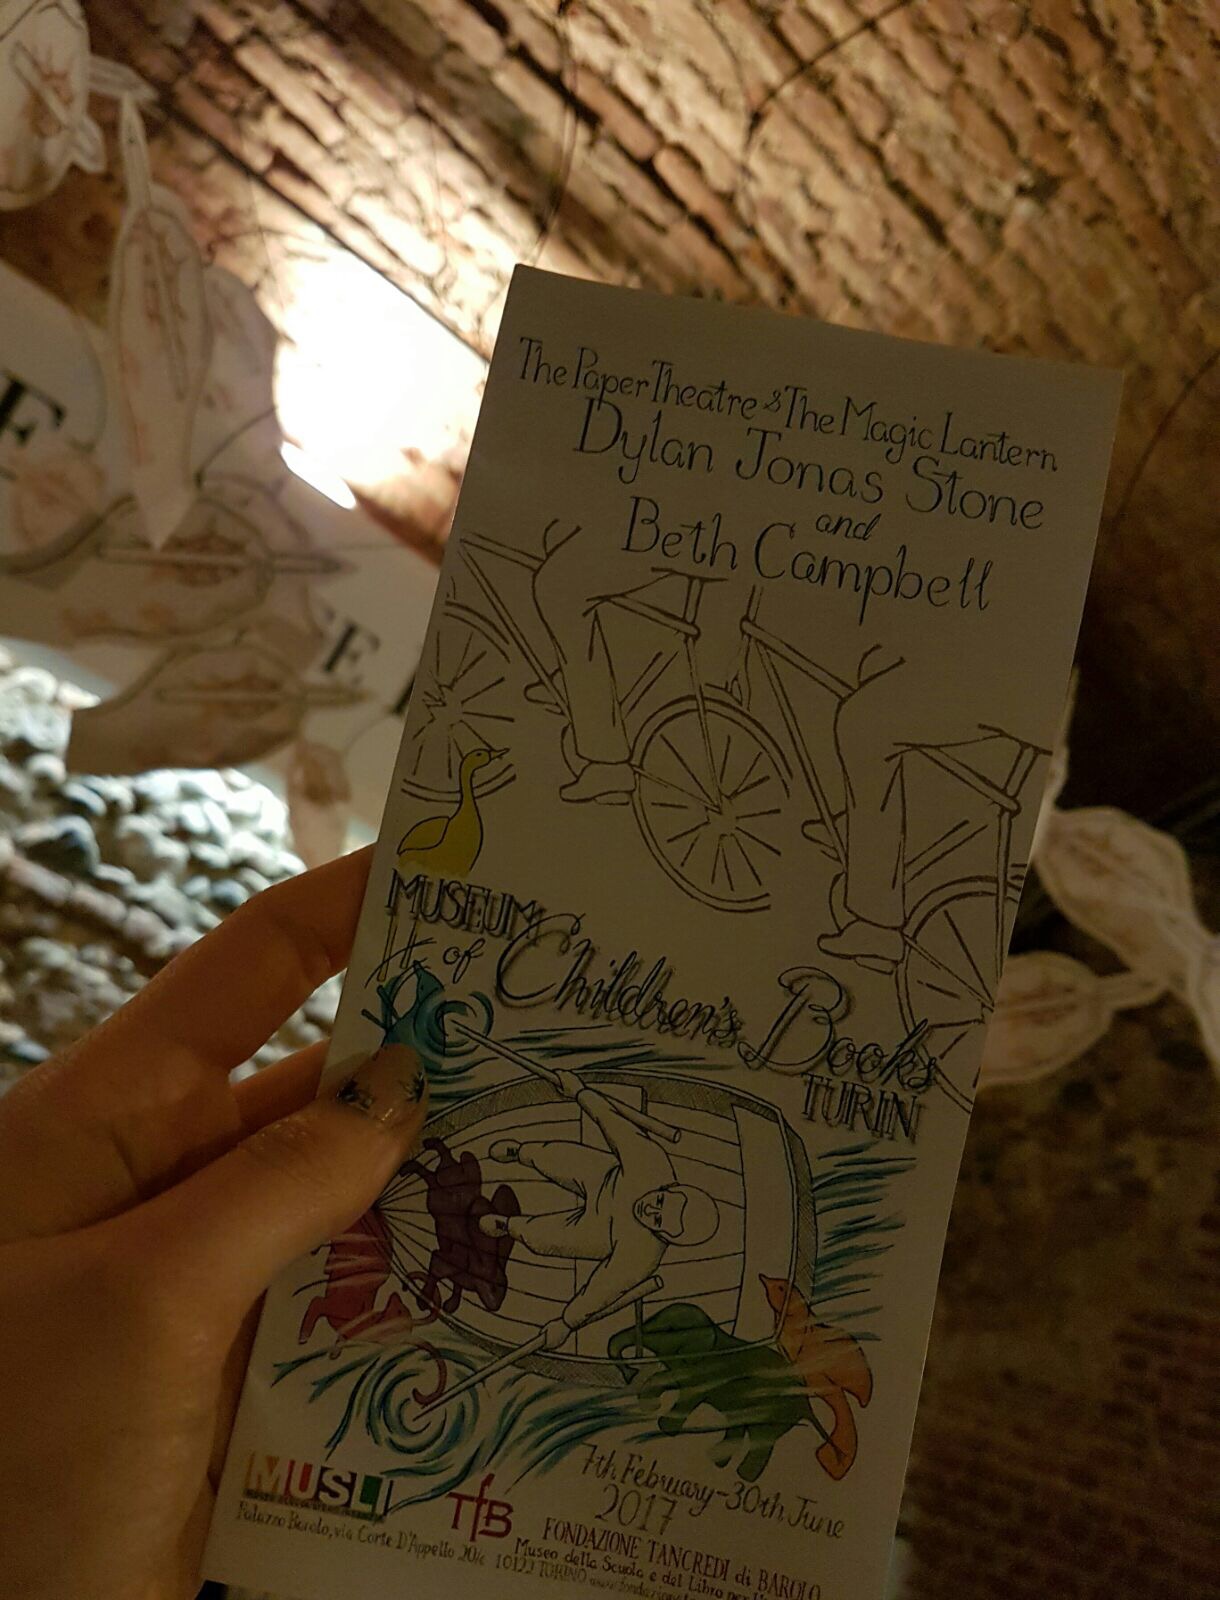 The Paper Theatre & The Magic Lantern
Dylan Jonas Stone
and
Beth Campbell
MUSEUM
of Children's Books
TURIN
7th February-30th June
2017
MUSLI
TfB
FONDAZIONE TANCREDI di BAROLO
Museo della Scuola e del Libro per
Palazzo Barolo, via Corte D'Appello 20/c 10122 TORINO
E
E